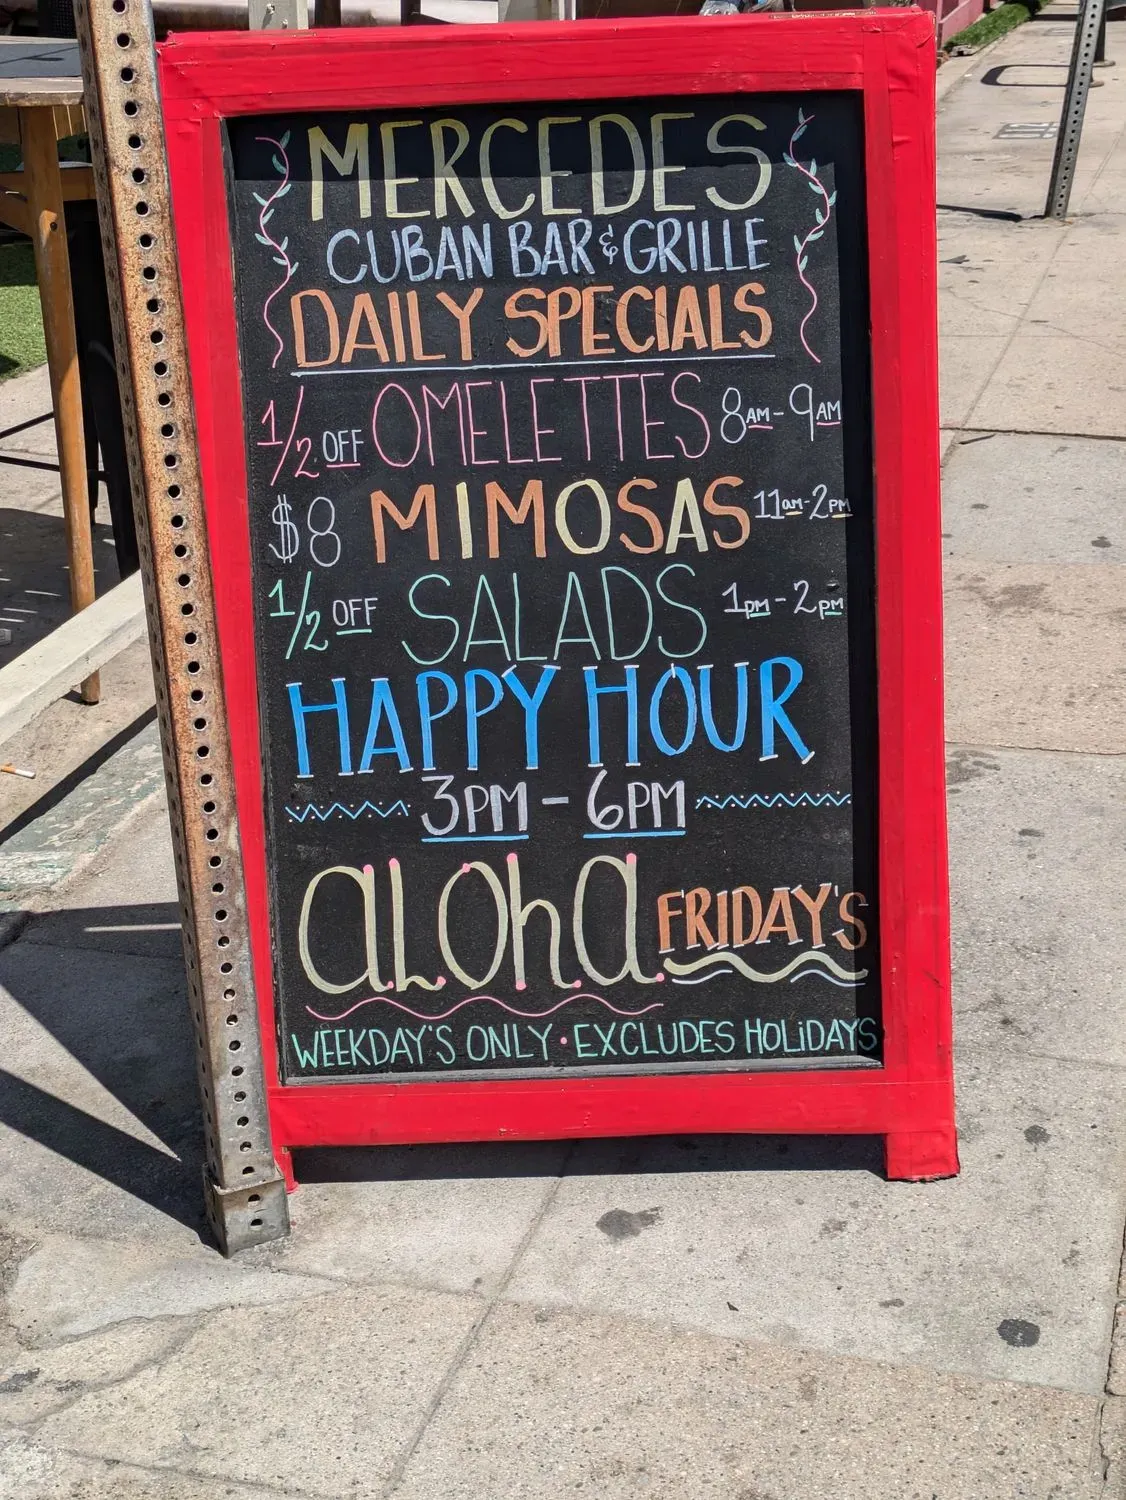 MERCEDES
CUBAN BAR & GRILLE
DAILY SPECIALS
1/2 OFF OMELETTES 8AM-9AM
$8 MIMOSAS 11am-2PM
1/2 OFF SALADS 1pm-2pm
HAPPY HOUR
3PM - 6PM
aLOha FRIDAY'S
WEEKDAY'S ONLY · EXCLUDES HOLiDAYS